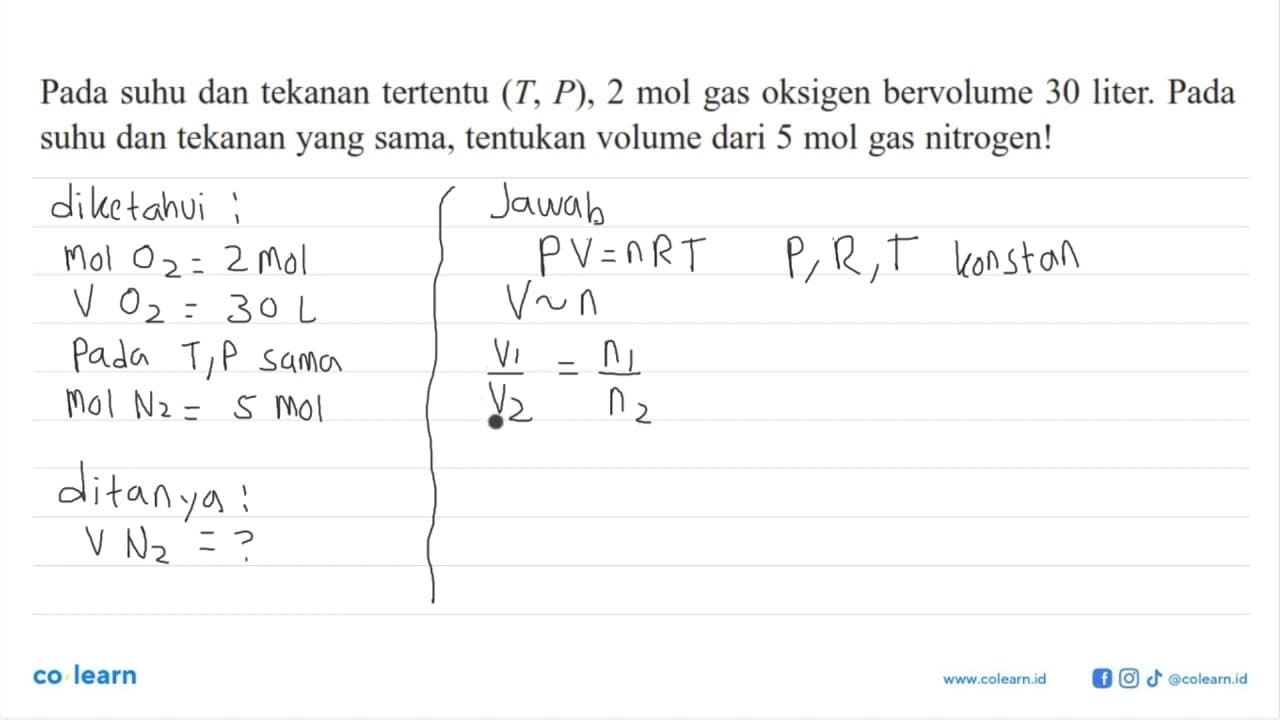 Pada suhu dan tekanan tertentu (T, P), 2 mol gas oksigen bervolume 30 liter. Pada
suhu dan tekanan yang sama, tentukan volume dari 5 mol gas nitrogen!
diketahui :
mol O2 = 2 mol
V O2 = 30 L
Pada T,P sama
mol N2 = 5 mol
ditanya :
V N2 = ?
Jawab
PV = nRT P, R, T konstan
V ~ n
V1 = n1
V2 n2
co learn
www.colearn.id @colearn.id